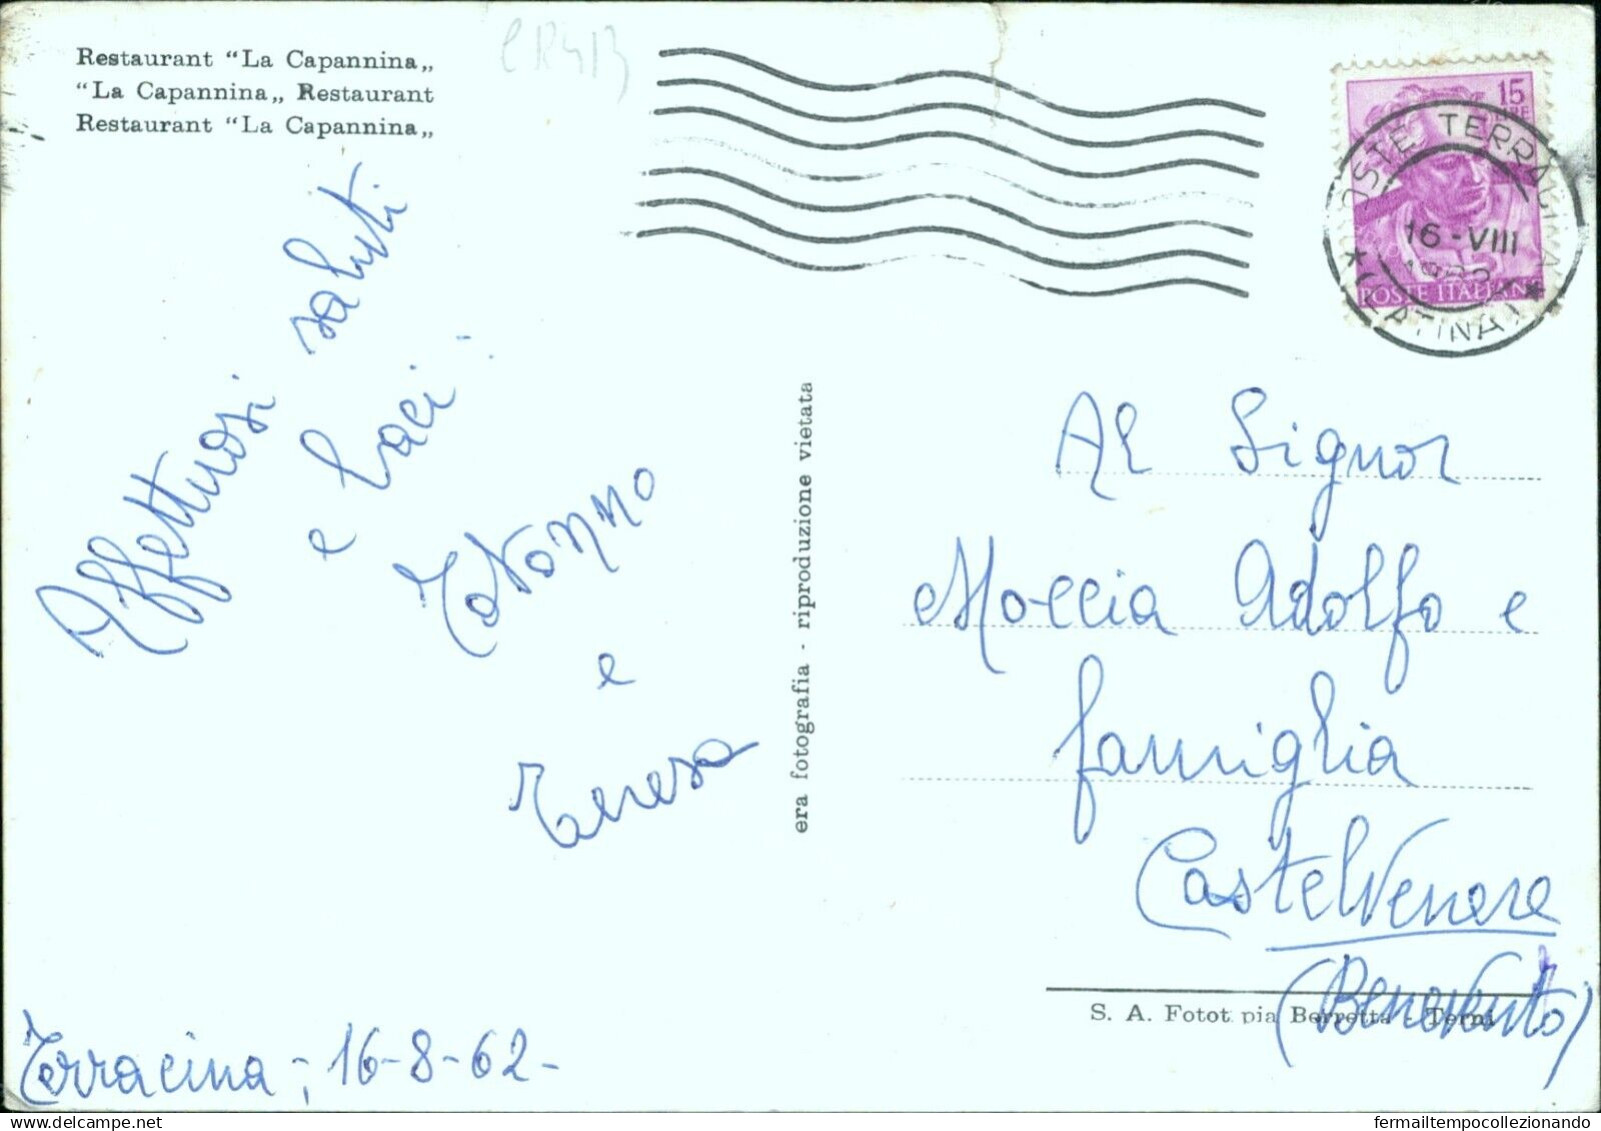 Restaurant “La Capannina„
“La Capannina„ Restaurant
Restaurant “La Capannina„
Affettuosi saluti
e baci
e
Teresa
Terracina, 16-8-62-
era fotografia - riproduzione vietata
15
LIRE
POSTE ITALIANE
POSTE TERRACINA
16-VIII
(LATINA)
Al Signor
Moccia Adolfo e
famiglia
Castelvenere
(Benevento)
S. A. Fotot pia Berretta - Terni
fermailtempocollezionando